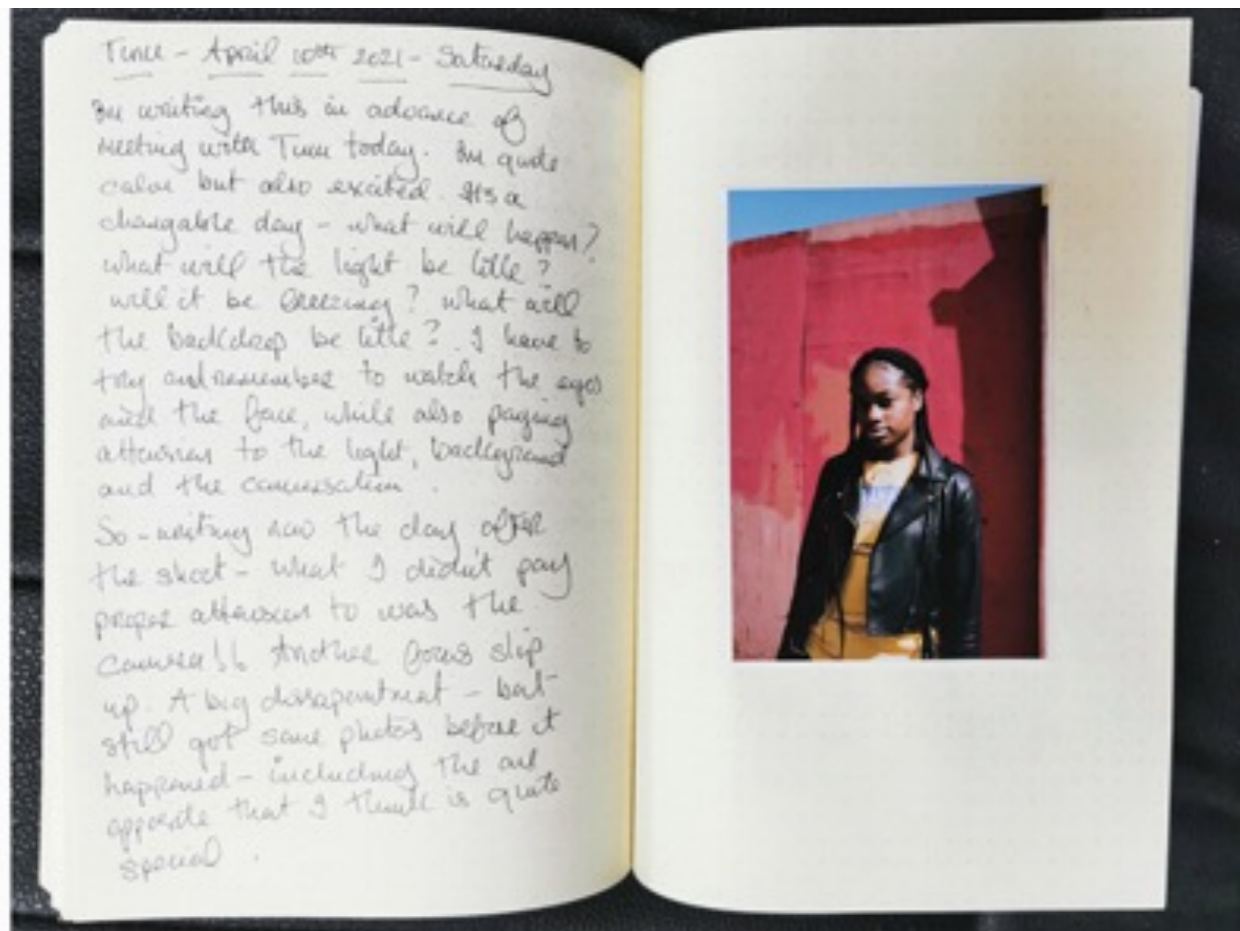 - April 10th 2021 - Saturday
Im writing this in advance of
meeting with today. Im quite
calm but also excited. Its a
changable day - what will happen?
what will the light be like?
will it be freezing? what will
the backdrop be like? I have to
try and remember to watch the eyes
and the face, while also paying
attension to the light, background
and the conversation.
So - writing now the day after
the shoot - what I didn't pay
proper attension to was the
camera!! Another focus slip
up. A big dissapointment - but
still got some photos before it
happened - including the one
opposite that I think is quite
special.